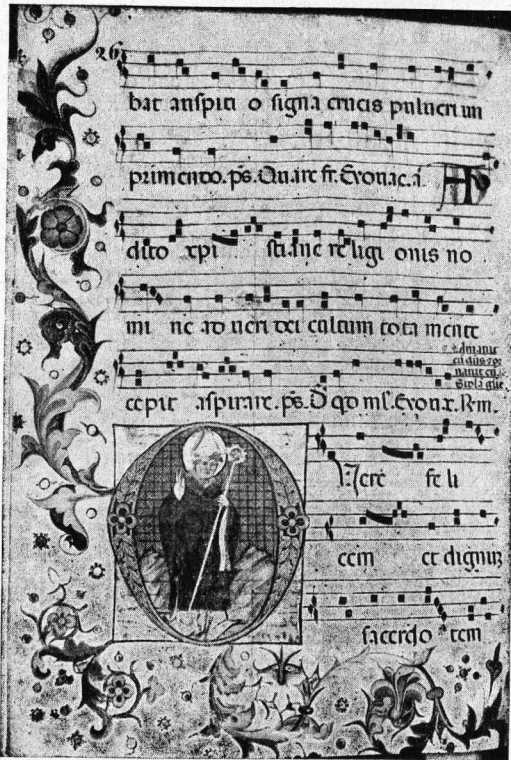 26
bat auspiti o signa crucis pulueri im
primendo. ps. Quare fr. Evouae. a. Au
dito xpi stiane re ligi onis no
mi ne ad ueri dei cultum tota mente
cepit aspirare. ps. D qd ml. Evouae. R m.
Vere fe li
cem et dignum
sacerdo tem